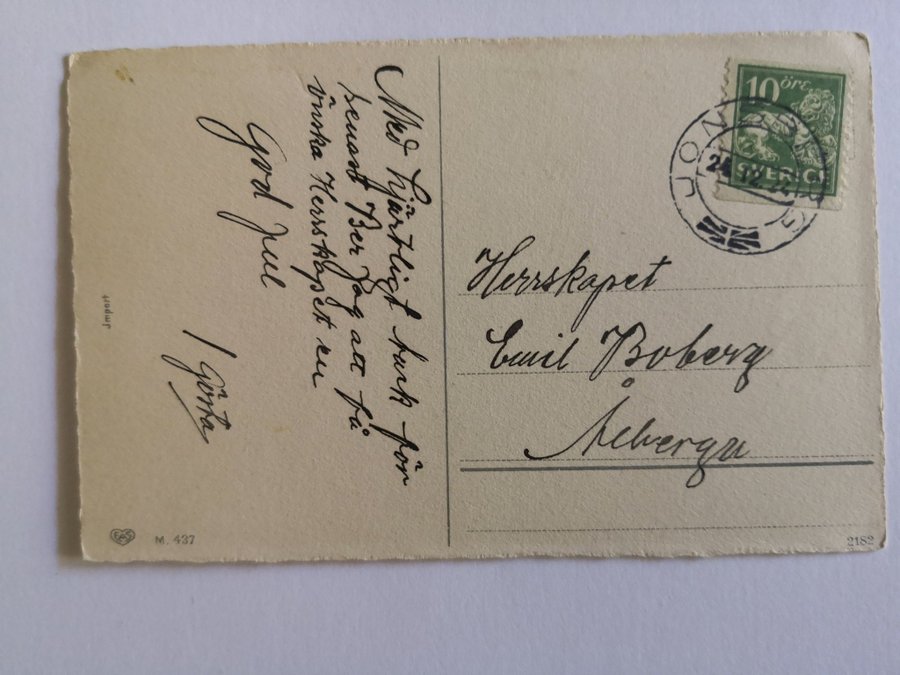 Med hjärtligt tack för
senast Ber jag att få
önska Herrskapet en
God Jul
Gösta
Herrskapet
Emil Boberg
Ålberga
10 öre
SVERIGE
JÖNÅBERG
24.12.24
Import
EAS
M. 437
2182